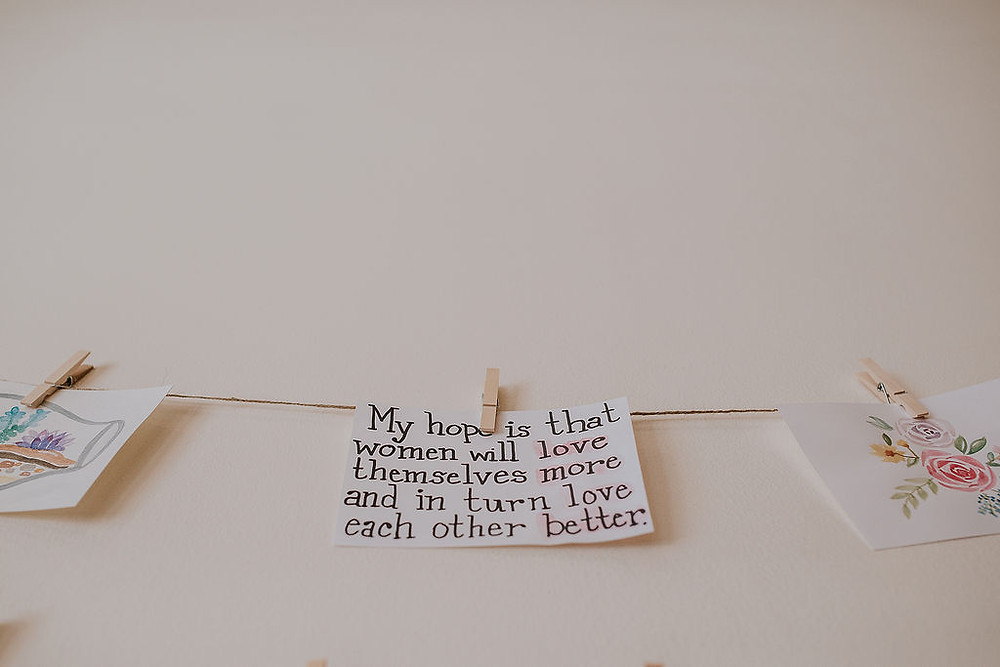 My hope is that
women will love
themselves more
and in turn love
each other better.